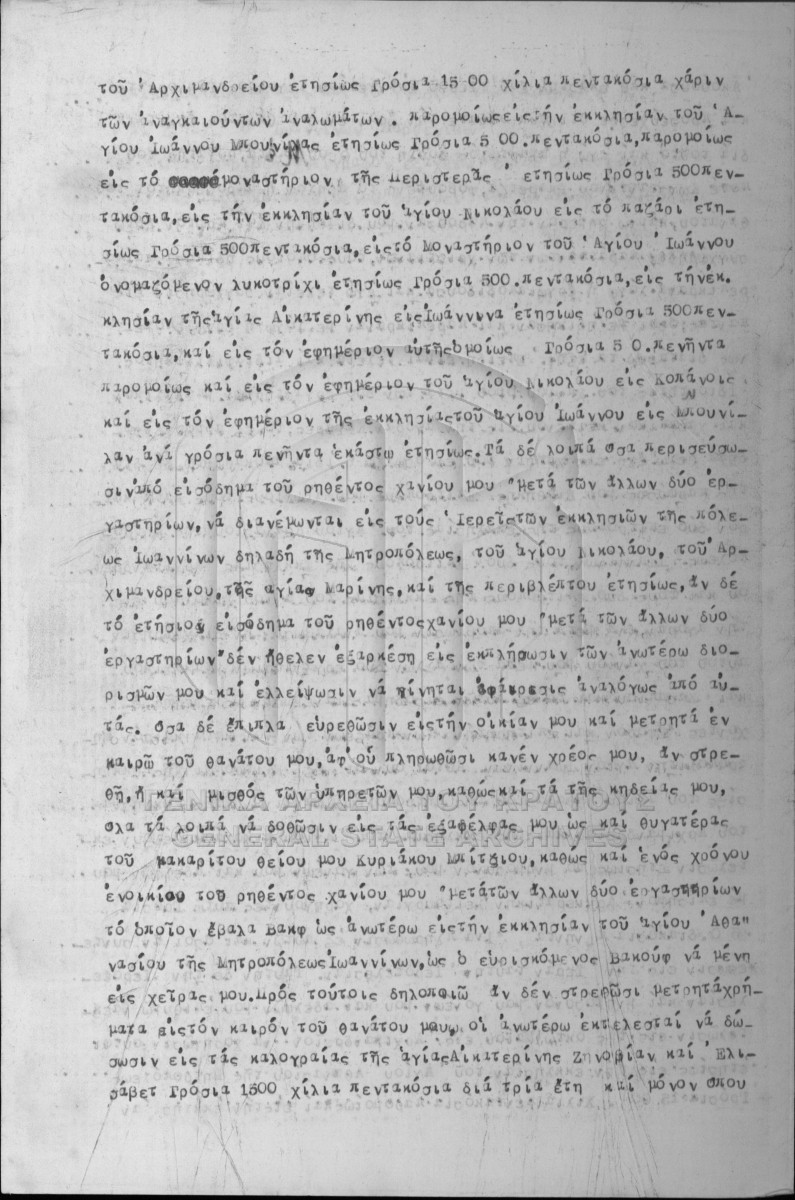 τοῦ Ἀρχιμανδρείου ἐτησίως Γρόσια 15 00 χίλια πεντακόσια χάριν
τῶν ἀναγκαιούντων ἀναλωμάτων. παρομοίως εἰς τήν ἐκκλησίαν τοῦ Ἁ-
γίου Ἰωάννου Μπουνίλας ἐτησίως Γρόσια 5 00. πεντακόσια, παρομοίως
εἰς τό μοναστήριον τῆς Περιστερᾶς ἐτησίως Γρόσια 500 πεν-
τακόσια, εἰς τήν ἐκκλησίαν τοῦ ἁγίου Νικολάου εἰς τό παζάρι ἐτη-
σίως Γρόσια 500 πεντακόσια, εἰς τό Μοναστήριον τοῦ Ἁγίου Ἰωάννου
ὀνομαζόμενον λυκοτρίχι ἐτησίως Γρόσια 500. πεντακόσια, εἰς τήν ἐκ.
κλησίαν τῆς ἁγίας Αἰκατερίνης εἰς Ἰωάννινα ἐτησίως Γρόσια 500 πεν-
τακόσια, καί εἰς τόν ἐφημέριον αὐτῆς ὁμοίως Γρόσια 5 0. πενῆντα
παρομοίως καί εἰς τόν ἐφημέριον τοῦ ἁγίου Νικολάου εἰς Κοπάνοις
καί εἰς τόν ἐφημέριον τῆς ἐκκλησίας τοῦ ἁγίου Ἰωάννου εἰς Μπουνί-
λαν ἀνά γρόσια πενῆντα ἑκάστω ἐτησίως. Τά δέ λοιπά ὅσα περισεύσω-
σιν ἀπό εἰσόδημα τοῦ ρηθέντος χανίου μου "μετά τῶν ἄλλων δύο ἐρ-
γαστηρίων, νά διανέμωνται εἰς τούς Ἱερεῖς τῶν ἐκκλησιῶν τῆς πόλε-
ως Ἰωαννίνων δηλαδή τῆς Μητροπόλεως, τοῦ ἁγίου Νικολάου, τοῦ Ἀρ-
χιμανδρείου, τῆς ἁγίας Μαρίνης, καί τῆς περιβλέπτου ἐτησίως, ἄν δέ
τό ἐτήσιον εἰσόδημα τοῦ ρηθέντος χανίου μου "μετά τῶν ἄλλων δύο
ἐργαστηρίων" δέν ἤθελεν ἐξαρκέση εἰς ἐκπλήρωσιν τῶν ἀνωτέρω διο-
ρισμῶν μου καί ἐλλείψωσιν νά γίνηται ἀφαίρεσις ἀναλόγως ἀπό αὐ-
τάς. Ὅσα δέ ἔπιπλα εὑρεθῶσιν εἰς τήν οἰκίαν μου καί μετρητά ἐν
καιρῶ τοῦ θανάτου μου, ἀφ' οὗ πληρωθῶσι κανέν χρέος μου, ἄν στρε-
θῆ, ἤ καί μισθός τῶν ὑπηρετῶν μου, καθώς καί τά τῆς κηδείας μου,
ὅλα τά λοιπά νά δοθῶσιν εἰς τάς ἐξαφέλφας μου ὡς καί θυγατέρας
τοῦ μακαρίτου θείου μου Κυριάκου Μπίτζιου, καθώς καί ἑνός χρόνου
ἐνοικίου τοῦ ρηθέντος χανίου μου "μετά τῶν ἄλλων δύο ἐργαστηρίων
τό ὁποῖον ἔβαλα Βακφ ὡς ἀνωτέρω εἰς τήν ἐκκλησίαν τοῦ ἁγίου Ἀθα"
νασίου τῆς Μητροπόλεως Ἰωαννίνων, ὡς ὁ εὑρισκόμενος Βακούφ νά μένη
εἰς χεῖρας μου. Πρός τούτοις δηλοποιῶ ἄν δέν στρεθῶσι μετρητά χρή-
ματα εἰς τόν καιρόν τοῦ θανάτου μου, οἱ ἀνωτέρω ἐκτελεσταί νά δώ-
σωσιν εἰς τάς καλογραίας τῆς ἁγίας Αἰκατερίνης Ζηνοβίαν καί Ἐλι-
σάβετ Γρόσια 1500 χίλια πεντακόσια διά τρία ἔτη καί μόνον ὅπου
ΓΕΝΙΚΑ ΑΡΧΕΙΑ ΤΟΥ ΚΡΑΤΟΥΣ
GENERAL STATE ARCHIVES